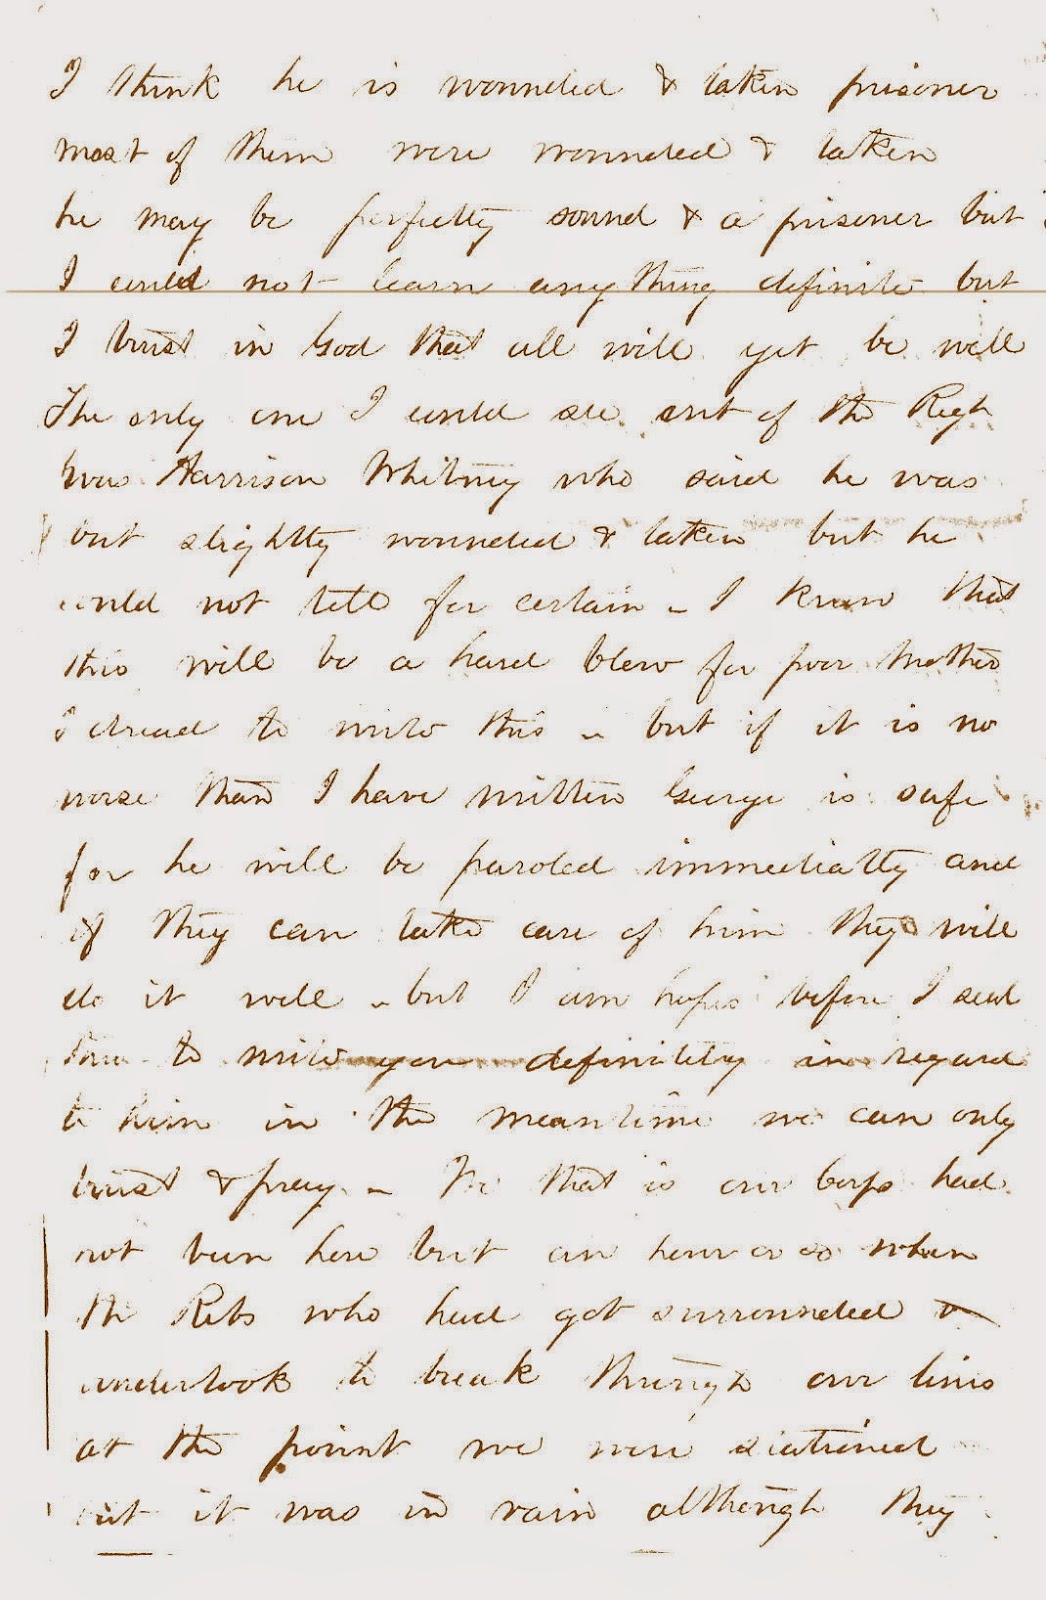 I think he is wounded & taken prisoner
most of them were wounded & taken
he may be perfectly sound & a prisoner but
I could not learn any thing definite but
I trust in God that all will yet be well
The only one I could see out of the Regt
was Harrison Whitney who said he was
but slightly wounded & taken but he
could not tell for certain - I know that
this will be a hard blow for poor Mother
I dread to write this - but if it is no
worse than I have written George is safe
for he will be paroled immediatly and
if they can take care of him they will
do it well - but I am hopes before I seal
this to write you definitely in regard
to him in the meantime we can only
trust & pray. - We that is our Corps had
not been here but an hour or so when
the Rebs who had got surrounded
undertook to break through our lines
at the point we were stationed
but it was in vain although they